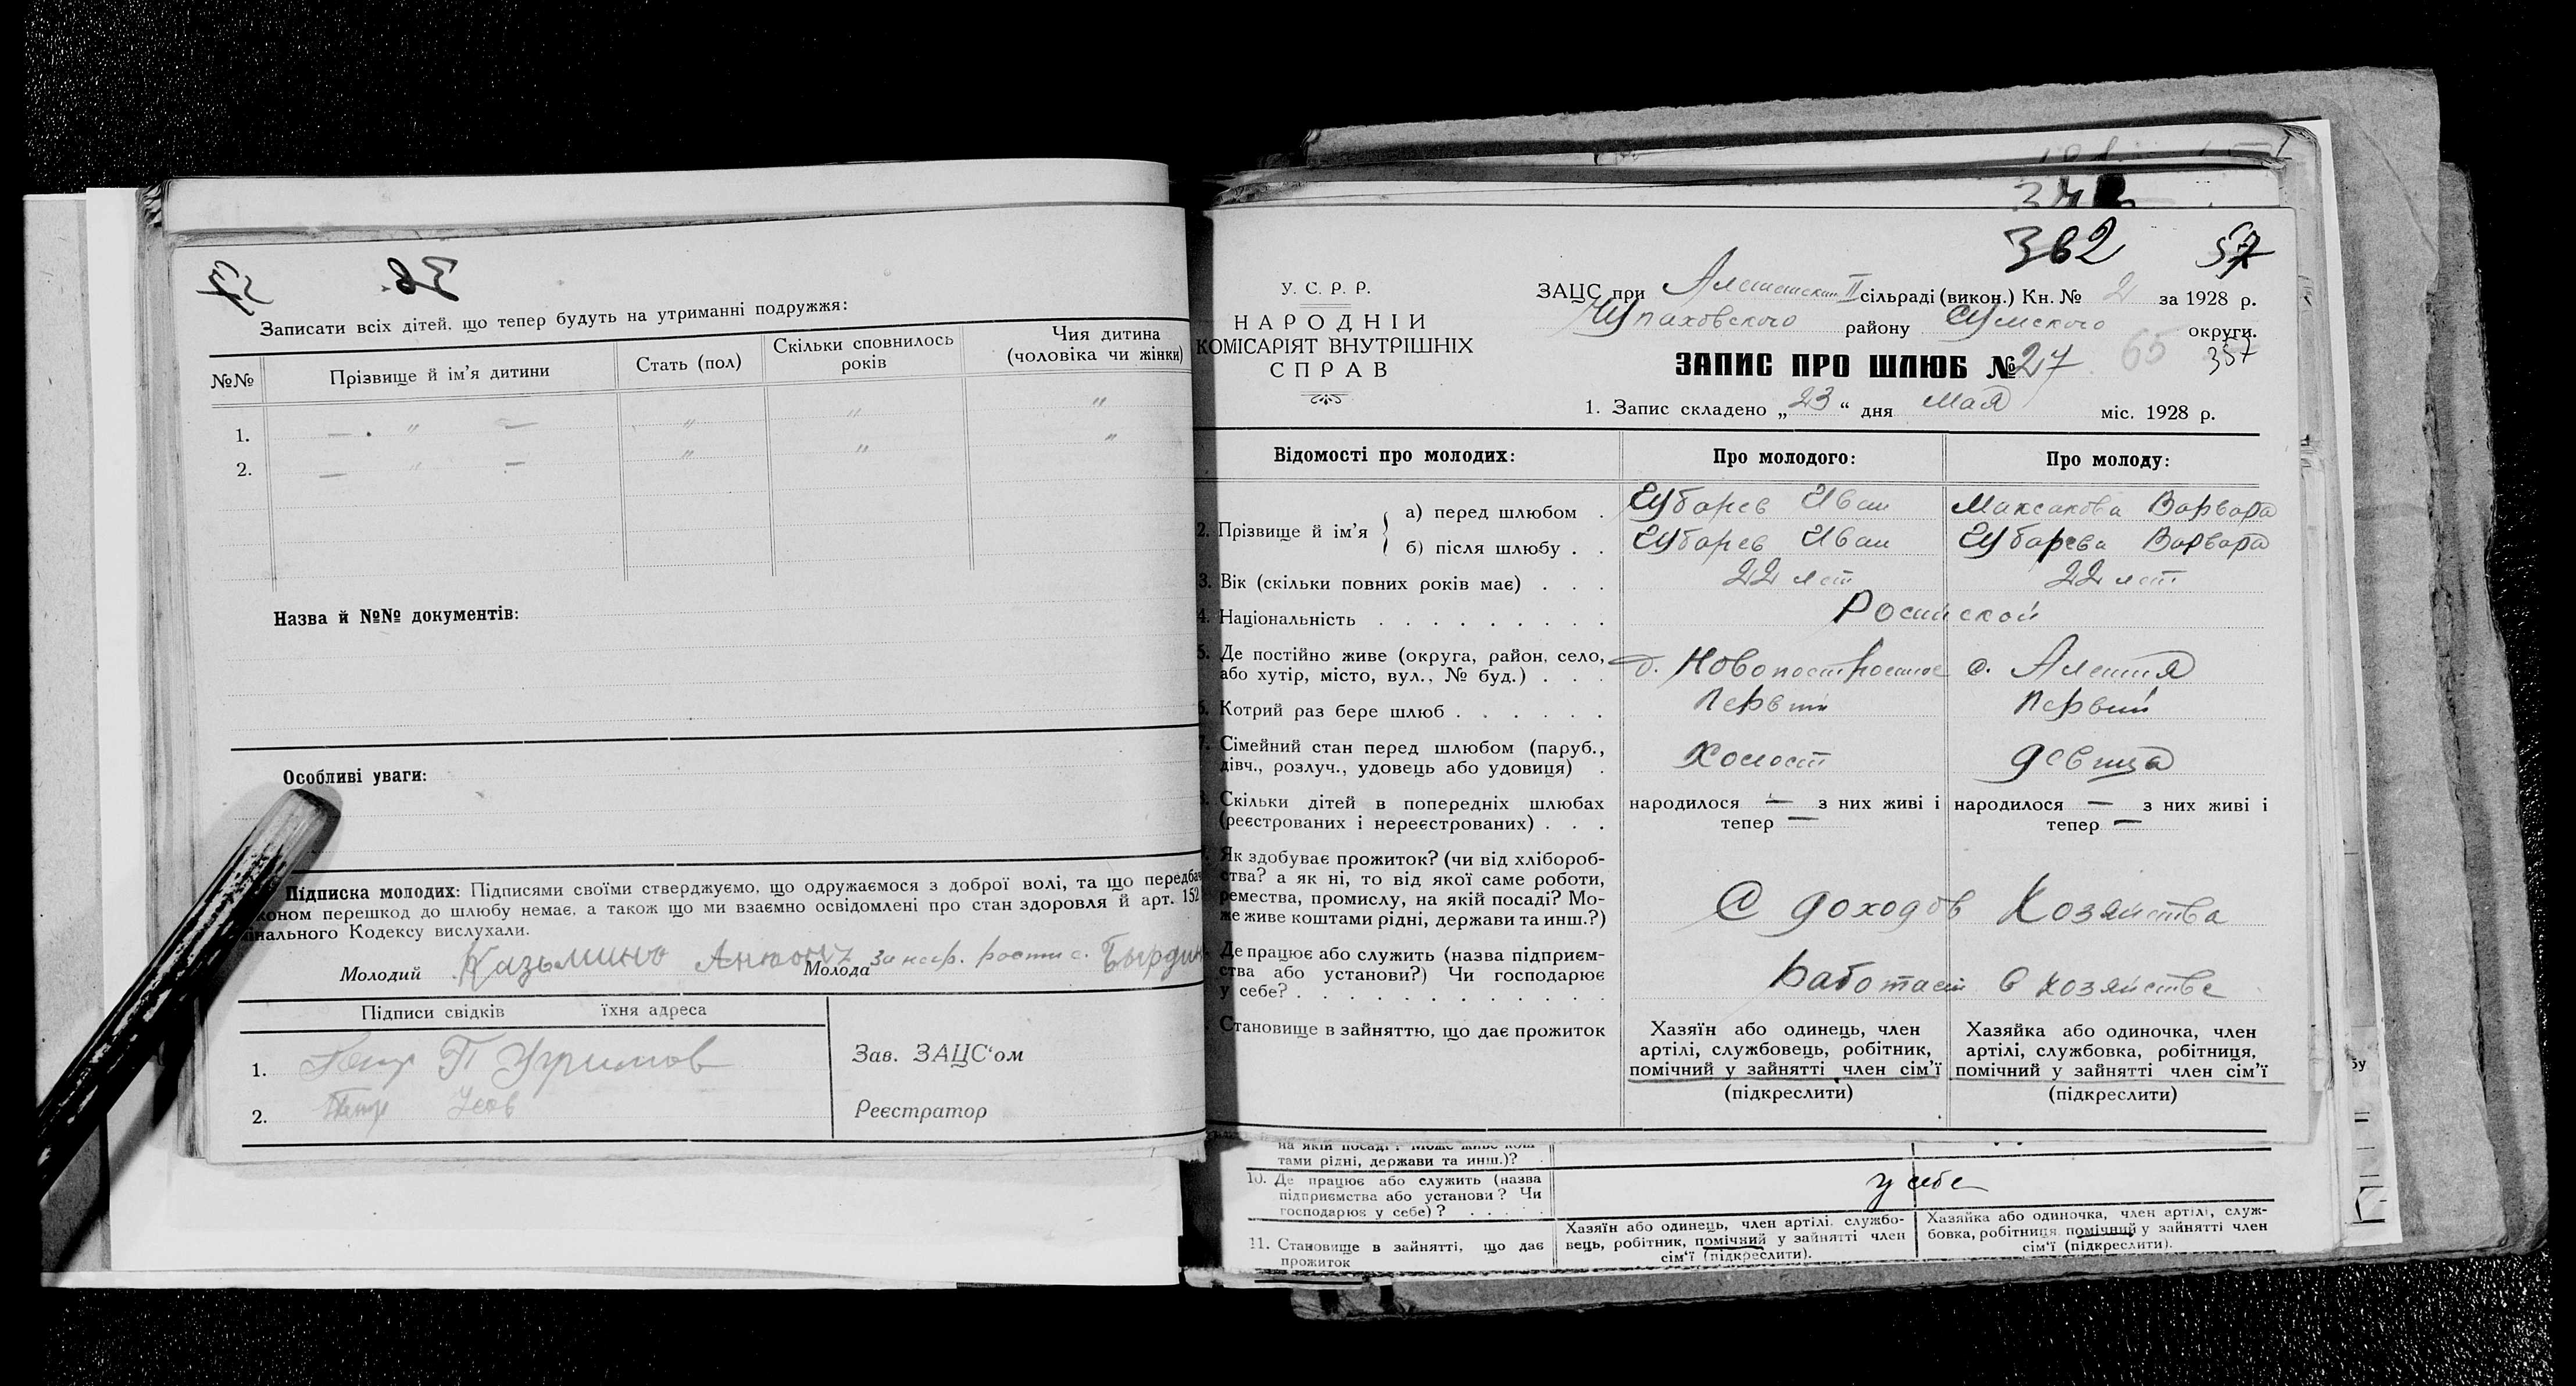 57
Записати всіх дітей, що тепер будуть на утриманні подружжя:
№№ Прізвище й ім'я дитини Стать (пол) Скільки сповнилось років Чия дитина (чоловіка чи жінки)
1. — " — " " "
2. — " — " " "
Назва й №№ документів:
Особливі уваги:
Підписка молодих: Підписями своїми стверджуємо, що одружаємося з доброї волі, та що передбач
коном перешкод до шлюбу немає, а також що ми взаємно освідомлені про стан здоровля й арт. 152
інального Кодексу вислухали.
Молодий Казьминъ Антонъ Молода за негр. рости с.
Підписи свідків їхня адреса
1. Петр П Угримов
2. Петр Усов
Зав. ЗАЦС'ом
Реєстратор
362 57
У. С. Р. Р.
НАРОДНІЙ
КОМІСАРІЯТ ВНУТРІШНІХ
СПРАВ
ЗАЦС при II сільраді (викон.) Кн. № 2 за 1928 р.
Чупаховского району Сумского округи.
ЗАПИС ПРО ШЛЮБ № 27 65 357
1. Запис складено „23“ дня Мая міс. 1928 р.
Відомості про молодих: Про молодого: Про молоду:
2. Прізвище й ім'я
а) перед шлюбом . Губарев Иван Максакова Варвара
б) після шлюбу . . Губарев Иван Губарева Варвара
3. Вік (скільки повних років має) . . . 22 лет 22 лет
4. Національність . . . . . . . . . Росийской
5. Де постійно живе (округа, район, село,
або хутір, місто, вул., № буд.) . . . д. Новопостроеное с. Алешня
6. Котрий раз бере шлюб . . . . . . Первый Первый
7. Сімейний стан перед шлюбом (паруб.,
дівч., розлуч., удовець або удовиця) . Холост девица
8. Скільки дітей в попередніх шлюбах народилося — з них живі і народилося — з них живі і
(реєстрованих і нереєстрованих) . . . тепер — тепер —
Як здобуває прожиток? (чи від хлібороб-
ства? а як ні, то від якої саме роботи,
ремества, промислу, на якій посаді? Мо-
же живе коштами рідні, держави та инш.?) С доходов Хозяйства
Де працює або служить (назва підприєм-
ства або установи?) Чи господарює
у себе? . . . . . . . . . . . . . Работает в хозяйстве
Становище в зайняттю, що дає прожиток
Хазяїн або одинець, член
артілі, службовець, робітник,
помічний у зайнятті член сім'ї
(підкреслити)
Хазяйка або одиночка, член
артілі, службовка, робітниця,
помічний у зайнятті член сім'ї
(підкреслити)
на якій посаді? Може живе кош-
тами рідні, держави та инш.)?
10. Де працює або служить (назва
підприємства або установи? Чи
господарює у себе)? . . . . . у себе
11. Становище в зайнятті, що дає
прожиток
Хазяїн або одинець, член артілі, службо-
вець, робітник, помічний у зайнятті член
сім'ї (підкреслити).
Хазяйка або одиночка, член артілі, служ-
бовка, робітниця, помічний у зайнятті член
сім'ї (підкреслити).